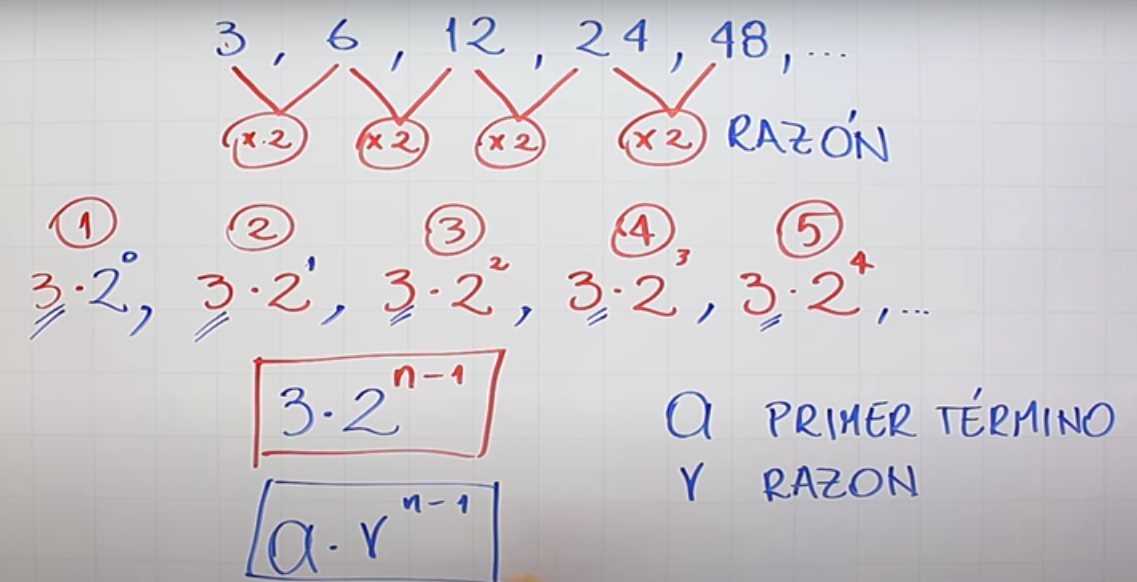 3, 6, 12, 24, 48, ...
x2 x2 x2 x2 RAZÓN
1 2 3 4 5
3·2⁰, 3·2¹, 3·2², 3·2³, 3·2⁴, ...
3·2ⁿ⁻¹
a PRIMER TÉRMINO
r RAZON
a·rⁿ⁻¹